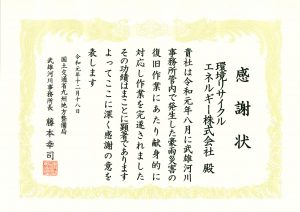 感謝状
環境リサイクル
エネルギー株式会社 殿
貴社は令和元年八月に武雄河川
事務所管内で発生した豪雨災害の
復旧作業にあたり献身的に
対応し作業を完遂されました
その功績はまことに顕著であります
よってここに深く感謝の意を
表します
令和元年十二月十八日
国土交通省九州地方整備局
武雄河川事務所長 藤本幸司